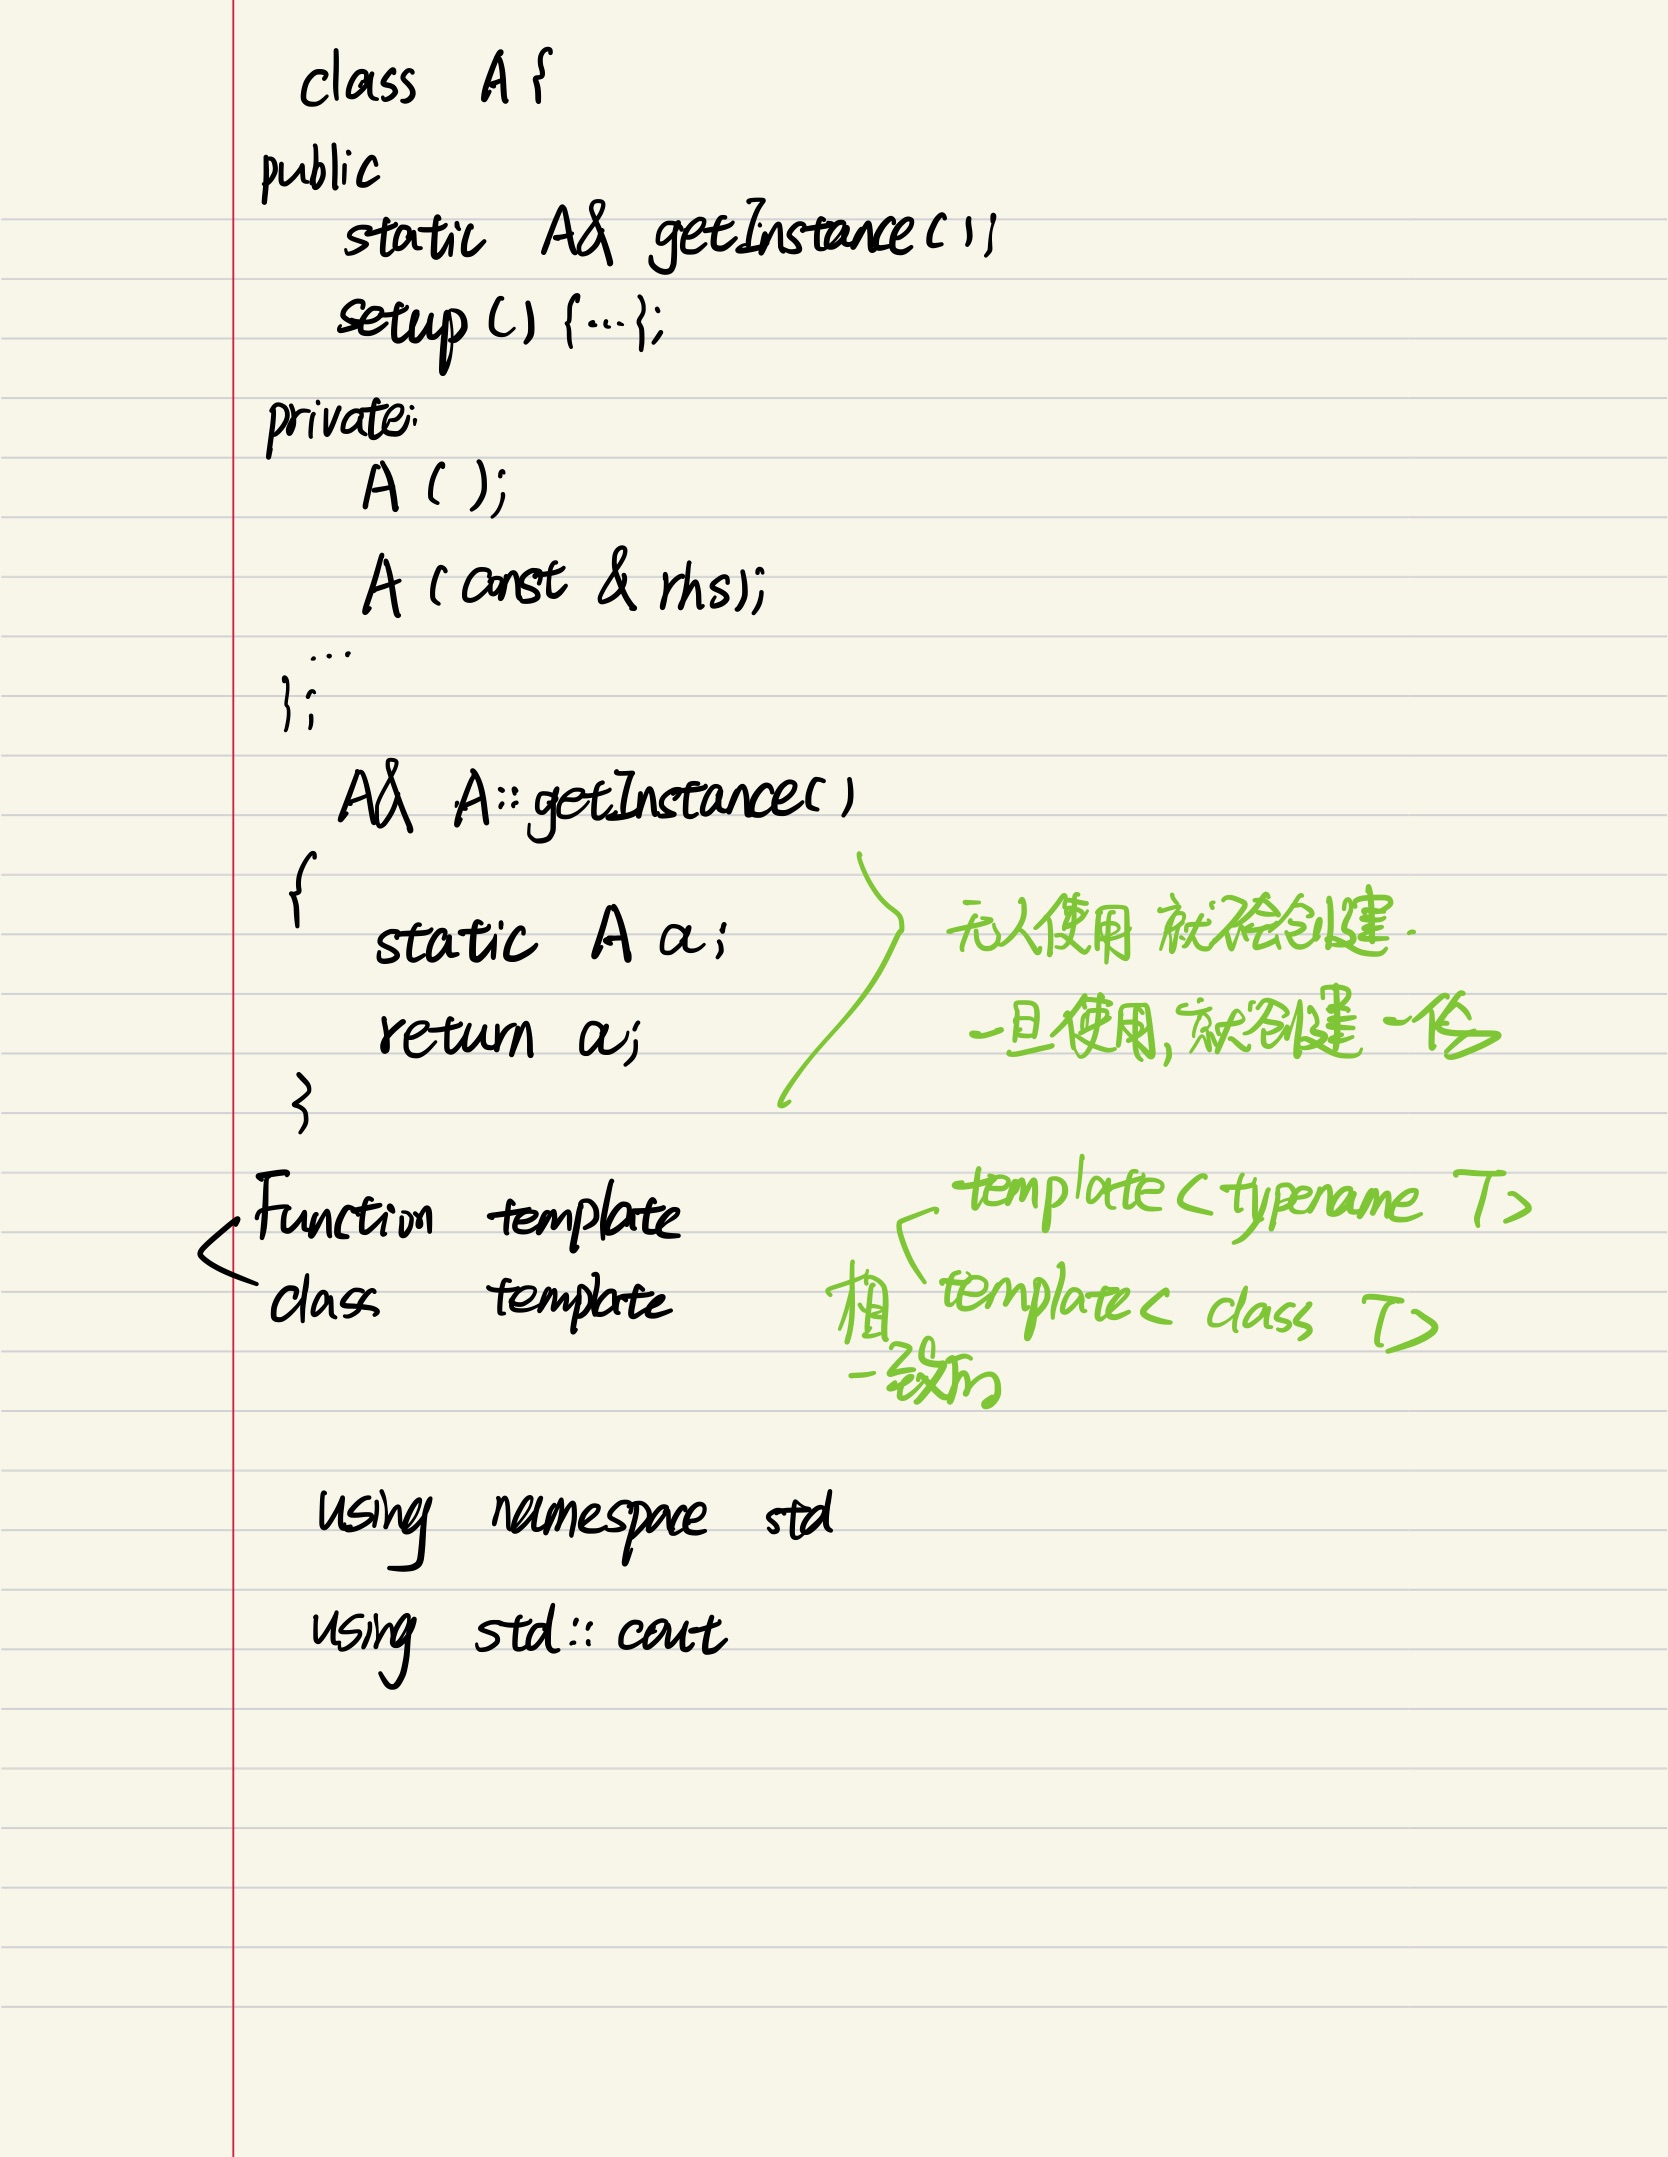 class A {
public
static A& getInstance();
setup() {...};
private:
A ( );
A (const & rhs);
...
};
A& A::getInstance()
{
static A a;
return a;
}
无人使用 就不会创建.
一旦使用,就会创建 一份
Function template
class template
template<typename T>
template< class T>
相
一致的
using namespace std
using std:: cout